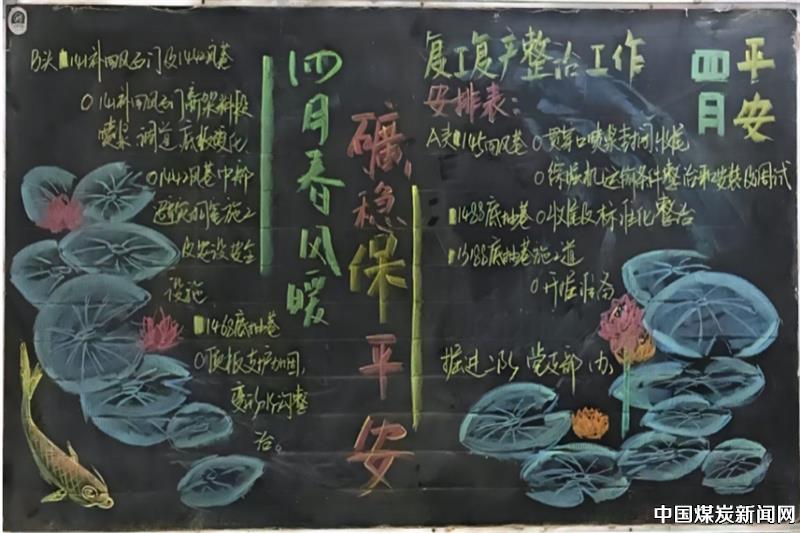 四月春风暖
礦稳保平安
平安
四月
复工复产整治工作
安排表：
A头 145回风巷 O贯穿口喷浆封闭收尾
O综掘机运输条件整治和安装及调试
1488底抽巷 O收尾及标准化整治
13188底抽巷施工道
O开掘准备
掘进二队 党支部 办
B头 141补回风石门及1442风巷
O 141补回风石门
喷浆
底板硬化
O 1442风巷中部
及安设安全
设施
1468底抽巷
O顶板支护加固,
变形 整
治。
中国煤炭新闻网